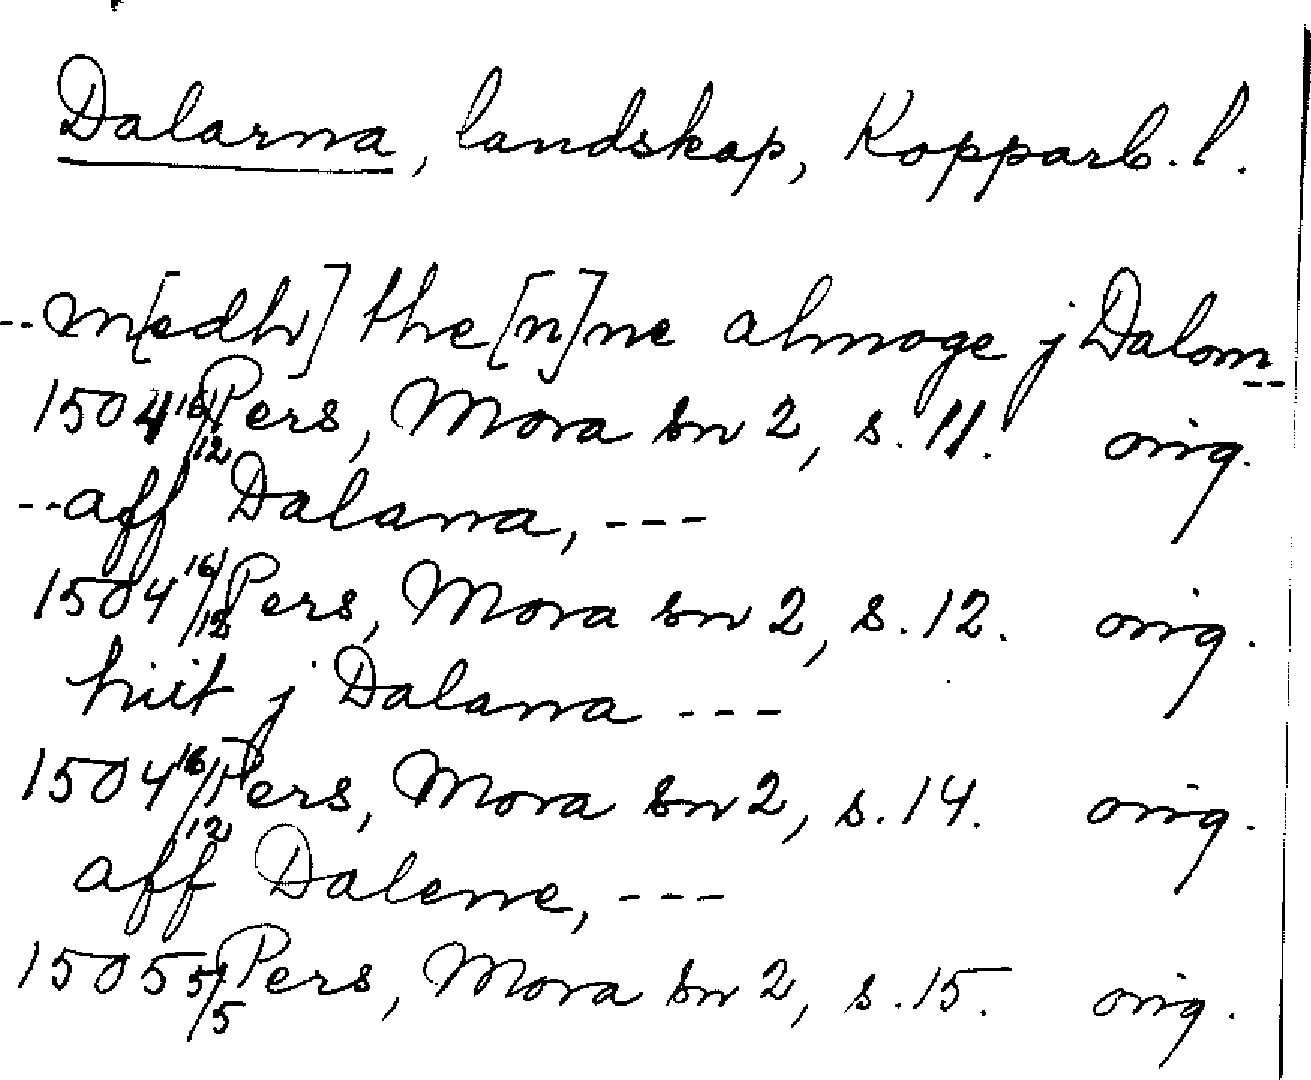 Dalarna, landskap, Kopparb. l.
--m[edh] the[n]ne almoge j Dalom--
1504 16/12 Pers, Mora sn 2, s. 11. orig.
--aff Dalarna, ---
1504 16/12 Pers, Mora sn 2, s. 12. orig.
hiit j Dalarna ---
1504 16/12 Pers, Mora sn 2, s. 14. orig.
aff Dalerne, ---
1505 5/5 Pers, Mora sn 2, s. 15. orig.